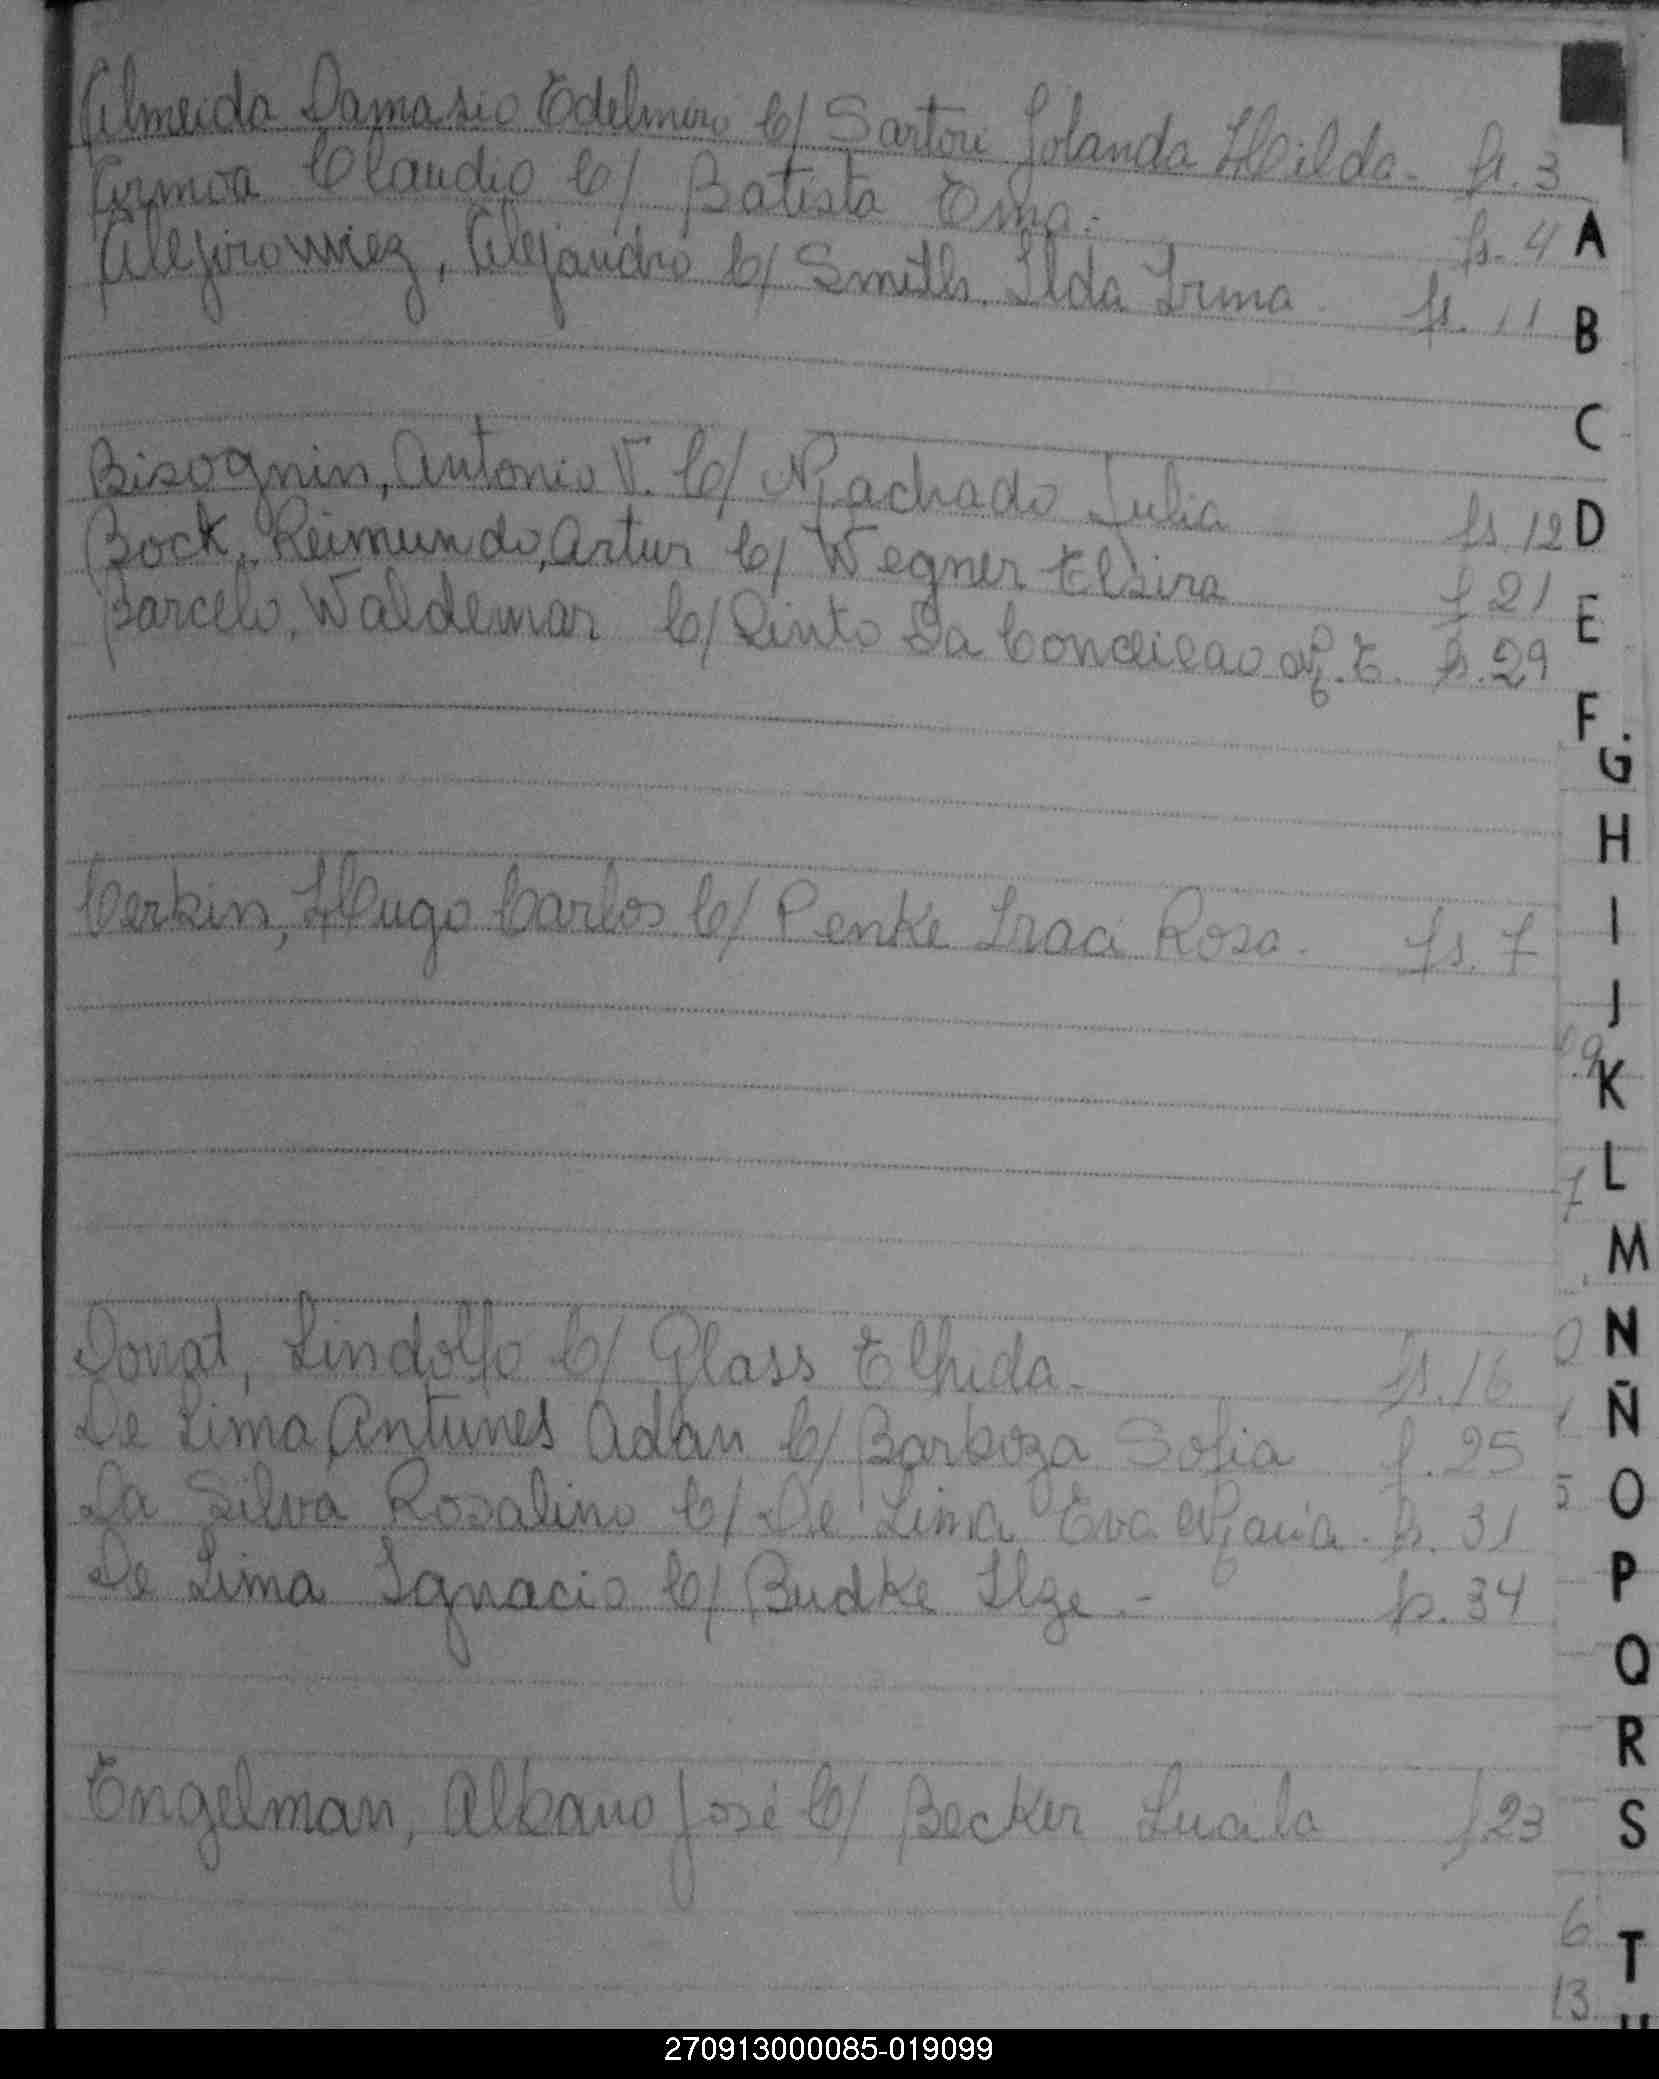 Almeida Damasio Edelmiro C/ Sartori Jolanda Hilda. fs. 3
Armoa Claudio C/ Batista Ema. fs. 4
Alejirowiez, Alejandro C/ Smith Ilda Irma fs. 11
Bisognin, Antonio V. C/ Machado Julia fs. 12
Bock, Reimundo, Artur C/ Wegner Elsira f 21
Barcelo, Waldemar C/ Pinto Da Conceicao M. E. fs. 29
Cerkin, Hugo Carlos C/ Penke Iraci Rosa. fs. 7
Donat, Lindolfo C/ Glass Elhida. fs. 16
De Lima Antunes Adan C/ Barboza Sofia f. 25
Da Silva Rosalino C/ De Lima Eva Maria. fs. 31
De Lima Ignacio C/ Budke Ilze.- fs. 34
Engelman, Albano José C/ Becker Lucila f 23
A
B
C
D
E
F
G
H
I
J
K
L
M
N
Ñ
O
P
Q
R
S
T
9
7
6
13
270913000085-019099